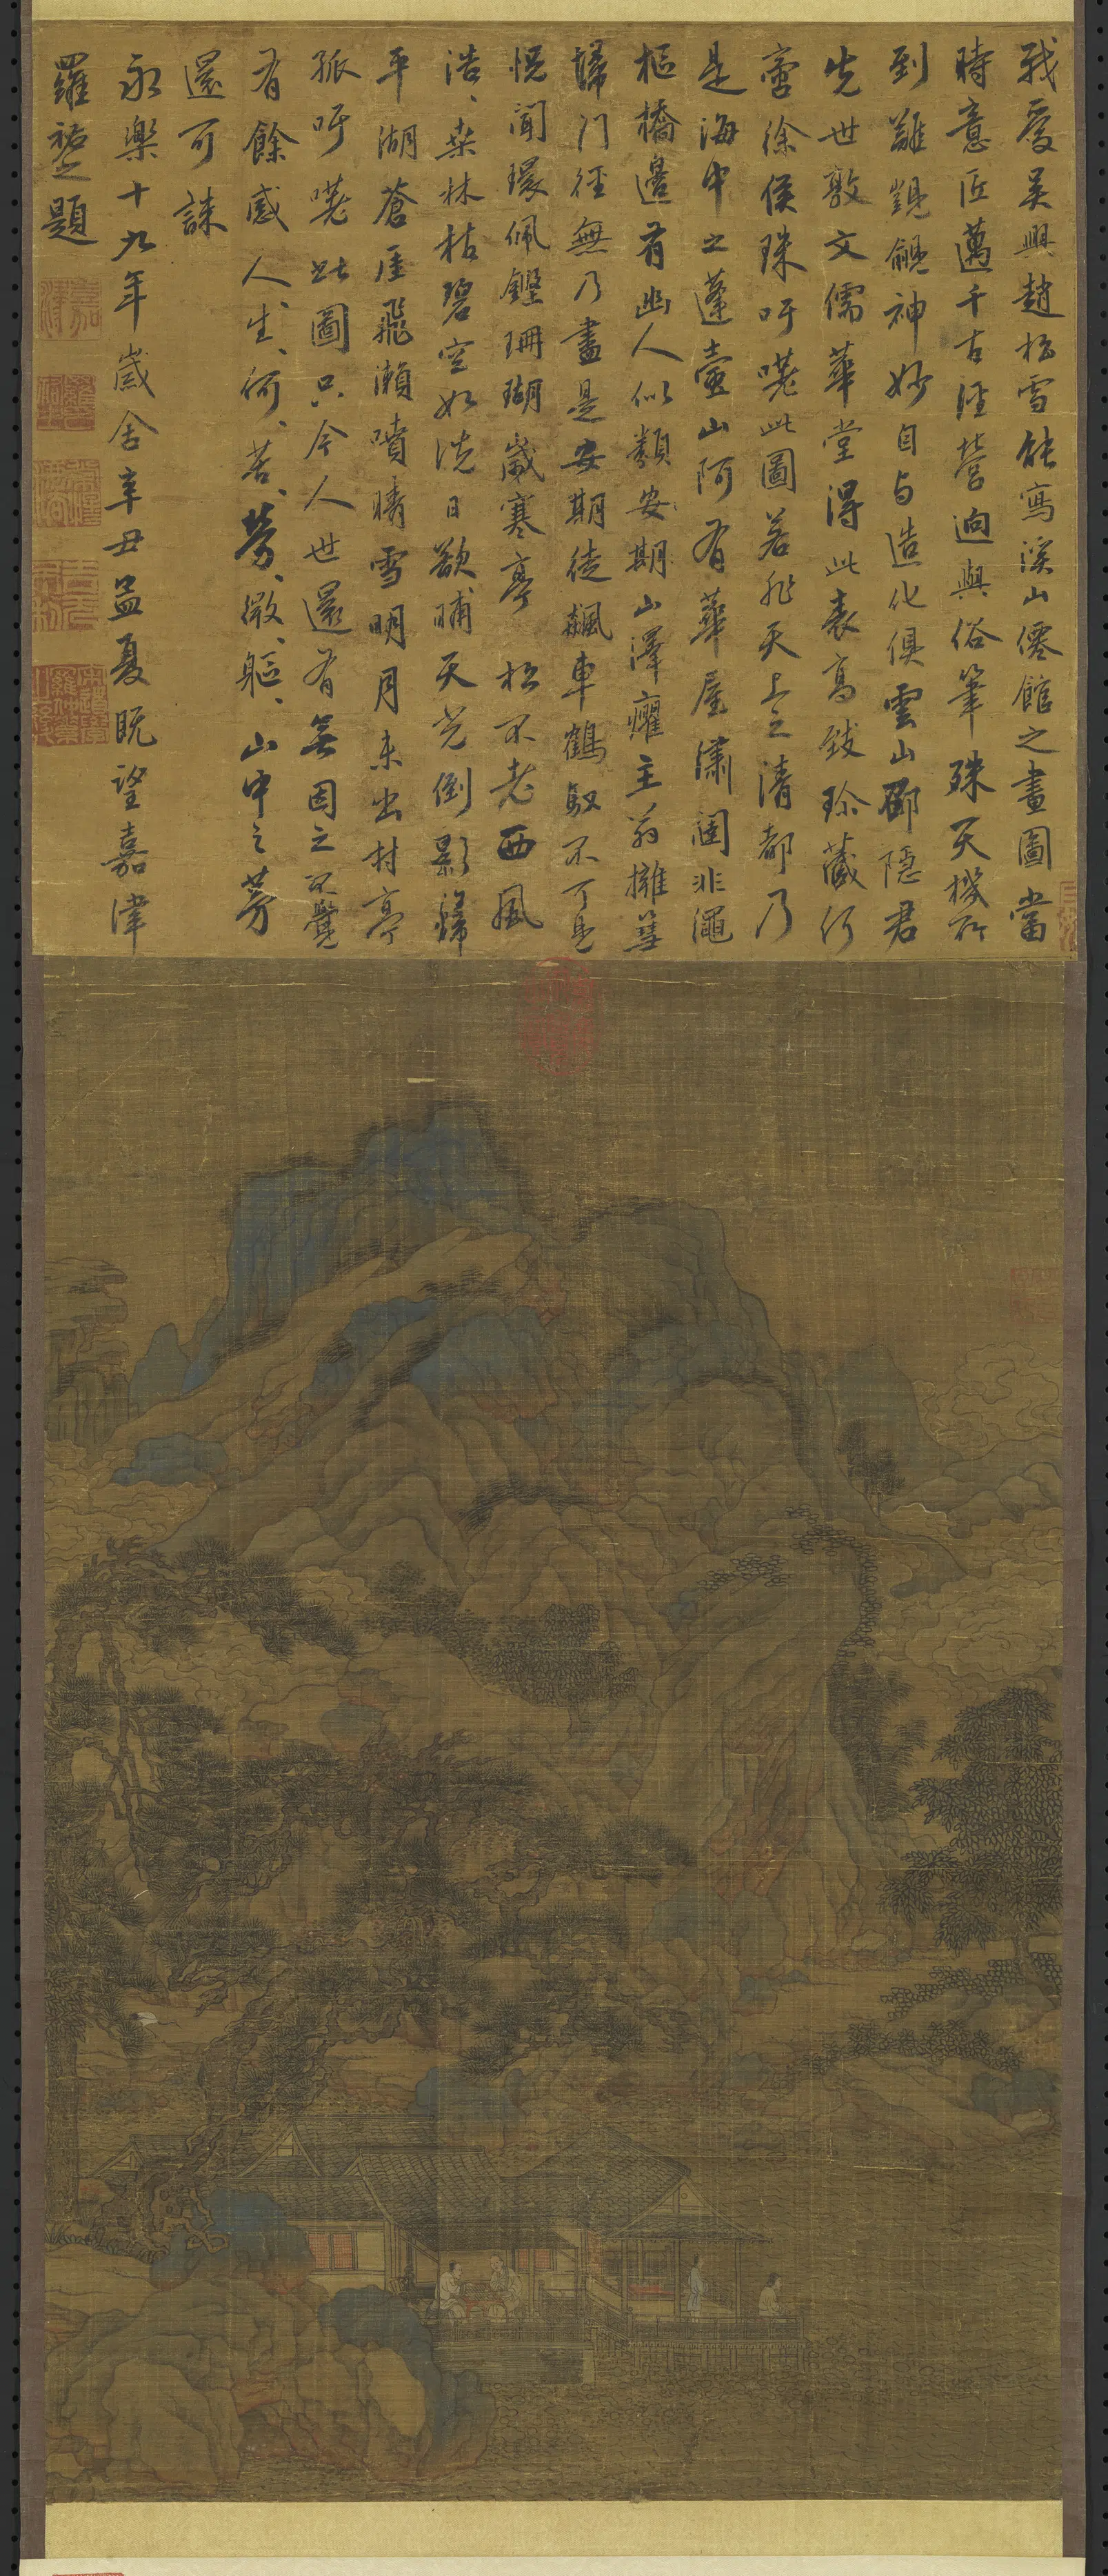 我愛吳興趙松雪能寫溪山僊館之畫圖當
時意匠邁千古經營迥與俗筆殊天機所
到難覬覦神妙自與造化俱雲山鄒隱君
先世敦文儒華堂得此表高致珍藏何
啻徐侯珠吁嗟此圖若非天上之清都乃
是海中之蓬壺山阿有華屋瀟洒非繩
樞橋邊有幽人似類安期山澤癯主翁擁篲
掃門徑無乃盡是安期徒飆車鶴馭不可見
恍聞環佩鏗珊瑚歲寒亭松不老西風
浩、桑林枯碧空如洗日欲晡天光倒影歸
平湖蒼崖飛瀨噴晴雪明月未出村亭
孤吁嗟此圖只今人世還有無因之不覺
有餘感人、生、何、苦、勞、微、軀、山中之芳
還可誅
永樂十九年歲舍辛丑孟夏既望嘉津
羅祐之題